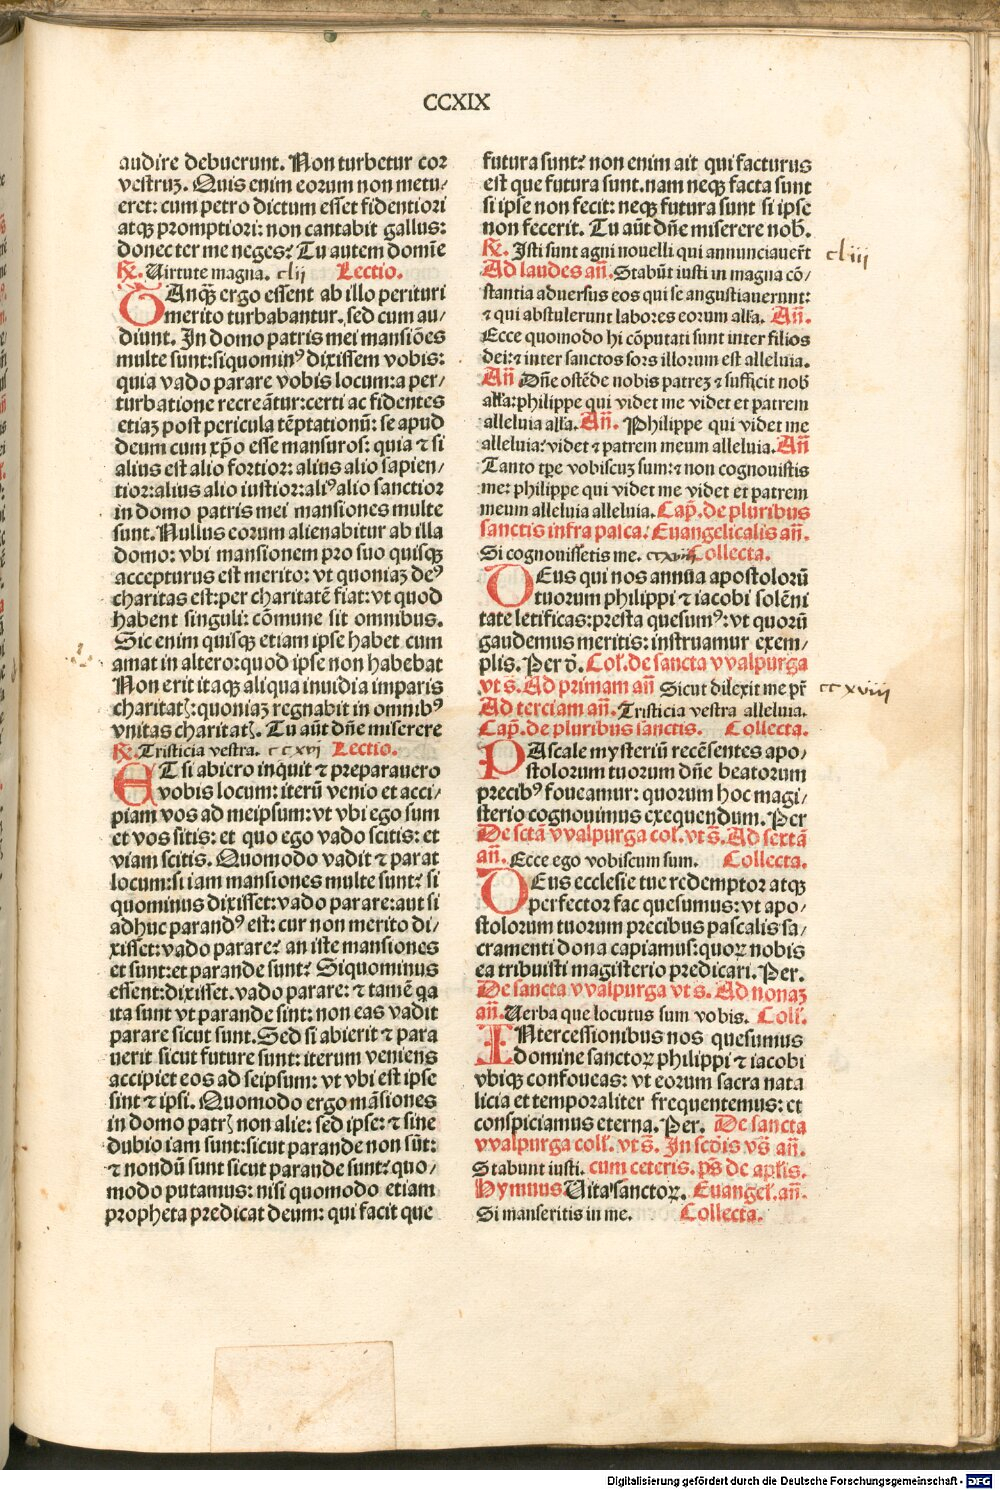 CCXIX
audire debuerunt. Non turbetur cor
vestruꝫ. Quis enim eorum non metu/
eret: cum petro dictum esset fidentiori
atqꝫ promptiori: non cantabit gallus:
donec ter me neges? Tu autem domīe
R̃. Uirtute magna. clii Lectio.
TAnqꝫ̄ ergo essent ab illo perituri
merito turbabantur. sed cum au/
diunt. In domo patris mei mansiōes
multe sunt: siquominꝰ dixissem vobis:
quia vado parare vobis locum: a per/
turbatione recreātur: certi ac fidentes
etiaꝫ post pericula tēptationū: se apud
deum cum xp̄o esse mansuros: quia ⁊ si
alius est alio fortior: alius alio sapien/
tior: alius alio iustior: aliꝰ alio sanctior
in domo patris mei mansiones multe
sunt. Nullus eorum alienabitur ab illa
domo: vbi mansionem pro suo quisqꝫ
accepturus est merito: vt quoniaꝫ deꝰ
charitas est: per charitatē fiat: vt quod
habent singuli: cōmune sit omnibus.
Sic enim quisqꝫ etiam ipse habet cum
amat in altero: quod ipse non habebat
Non erit itaqꝫ aliqua inuidia imparis
charitatꝭ: quoniaꝫ regnabit in omnibꝰ
vnitas charitatꝭ. Tu aūt dñe miserere
R̃. Tristicia vestra. ccxvi Lectio.
ET si abiero inquit ⁊ preparauero
vobis locum: iterū venio et acci/
piam vos ad meipsum: vt vbi ego sum
et vos sitis: et quo ego vado scitis: et
viam scitis. Quomodo vadit ⁊ parat
locum: si iam mansiones multe sunt? si
quominus dixisset: vado parare: aut si
adhuc parandꝰ est: cur non merito di/
xisset: vado parare? an iste mansiones
et sunt: et parande sunt? Siquominus
essent: dixisset. vado parare: ⁊ tamē qa
ita sunt vt parande sint: non eas vadit
parare sicut sunt. Sed si abierit ⁊ para
uerit sicut future sunt: iterum veniens
accipiet eos ad seipsum: vt vbi est ipse
sint ⁊ ipsi. Quomodo ergo māsiones
in domo patrꝭ non alie: sed ipse: ⁊ sine
dubio iam sunt: sicut parande non sūt:
⁊ nondū sunt sicut parande sunt? quo/
modo putamus: nisi quomodo etiam
propheta predicat deum: qui facit que
futura sunt? non enim ait qui facturus
est que futura sunt. nam neqꝫ facta sunt
si ipse non fecit: neqꝫ futura sunt si ipse
non fecerit. Tu aūt dñe miserere nob̄.
R̃. Isti sunt agni nouelli qui annunciauer̄t cliii
Ad laudes añ. Stabūt iusti in magna cō/
stantia aduersus eos qui se angustiauerunt:
⁊ qui abstulerunt labores eorum alľa. Añ.
Ecce quomodo hi cōputati sunt inter filios
dei: ⁊ inter sanctos sors illorum est alleluia.
Añ Dñe ostēde nobis patreꝫ ⁊ sufficit nob̄
alľa: philippe qui videt me videt et patrem
alleluia alľa. Añ. Philippe qui videt me
alleluia: videt ⁊ patrem meum alleluia. Añ
Tanto tp̄e vobiscuꝫ sum: ⁊ non cognouistis
me: philippe qui videt me videt et patrem
meum alleluia alleluia. Cap̄. de pluribus
sanctis infra pasca. Euangelicalis añ.
Si cognouissetis me. Collecta.
DEus qui nos annua apostolorū
tuorum philippi ⁊ iacobi solēni
tate letificas: presta quesumꝰ: vt quorū
gaudemus meritis: instruamur exem/
plis. Per d̄. Col̄. de sancta vvalpurga
vt s̄. Ad primam añ Sicut dilexit me pr̄ ccxviii
Ad terciam añ. Tristicia vestra alleluia.
Cap̄. de pluribus sanctis. Collecta.
PAscale mysteriū recēsentes apo/
stolorum tuorum dñe beatorum
precibꝰ foueamur: quorum hoc magi/
sterio cognouimus exequendum. Per
De sctā vvalpurga col. vt s̄. Ad sextā
añ. Ecce ego vobiscum sum. Collecta.
DEus ecclesie tue redemptor atqꝫ
perfector fac quesumus: vt apo/
stolorum tuorum precibus pascalis sa/
cramenti dona capiamus: quoꝝ nobis
ea tribuisti magisterio predicari. Per.
De sancta vvalpurga vt s̄. Ad nonaꝫ
añ. Uerba que locutus sum vobis. Col̄.
INtercessionibus nos quesumus
domine sanctoꝝ philippi ⁊ iacobi
vbiqꝫ confoueas: vt eorum sacra nata
licia et temporaliter frequentemus: et
conspiciamus eterna. Per. De sancta
vvalpurga coll̄. vt s̄. In scd̄is vs̄ añ.
Stabunt iusti. cum ceteris. ps̄ de aplis.
Hymnus Uita sanctoꝝ. Euangel̄. añ.
Si manseritis in me. Collecta.
Digitalisierung gefördert durch die Deutsche Forschungsgemeinschaft - DFG